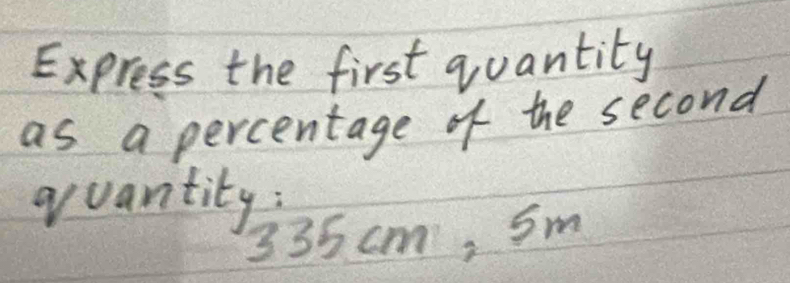 Express the first quantity
as a percentage of the second
quantity:
335 cm, 5m